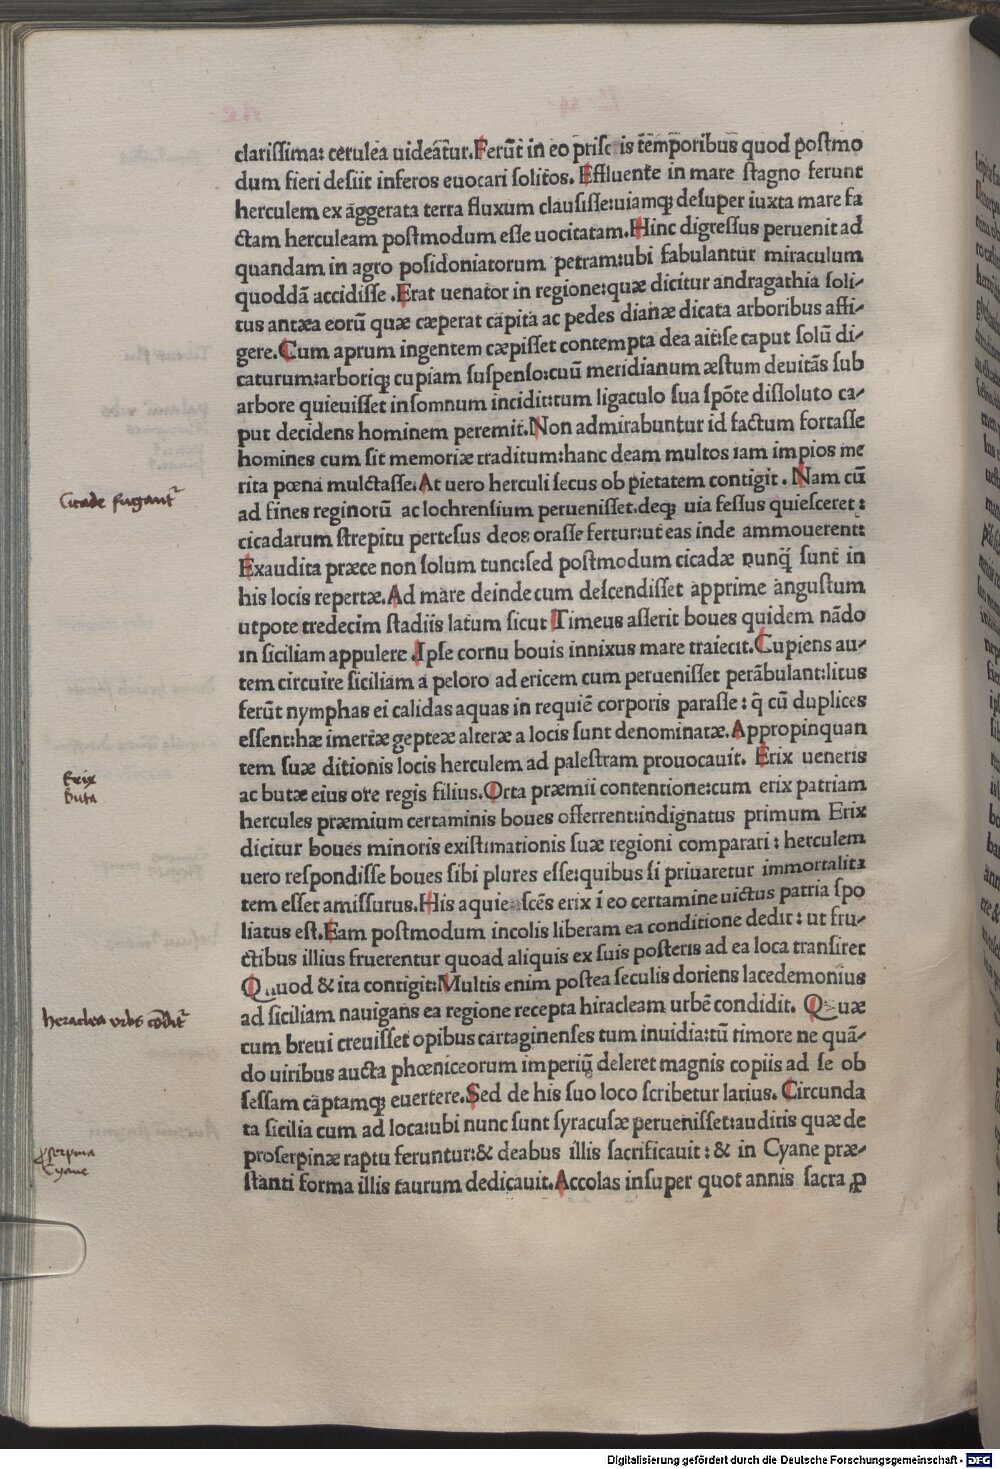 clarissima: cerulea uideat̃ur. Ferũt in eo priscis tẽmporibus quod postmo
dum fieri desiit inferos euocari solitos. Effluente in mare stagno ferunt
herculem ex aggerata terra fluxum clausisse: uiamqꝫ desuper iuxta mare fa
ctam herculeam postmodum esse uocitatam. Hinc digressus peruenit ad
quandam in agro posidoniatorum petram: ubi fabulantur miraculum
quoddã accidisse. Erat uenator in regione: quæ dicitur andragathia soli-
tus antæa eorũ quæ cæperat capita ac pedes dianæ dicata arboribus affi-
gere. Cum aprum ingentem cæpisset contempta dea aít: se caput solũ di-
caturum: arboriqꝫ cupiam suspenso: cuũ meridianum æstum deuitãs sub
arbore quieuisset in somnum incidit: tum ligaculo sua spõte dissoluto ca-
put decidens hominem peremit. Non admirabuntur id factum fortasse
homines cum sit memoriæ traditum: hanc deam multos iam impios me
rita pœna mulctasse. At uero herculi secus ob pietatem contigit. Nam cũ
ad fines reginorũ ac lochrensium peruenisset. deqꝫ uia fessus quiesceret:
cicadarum strepitu pertesus deos orasse fertur: ut eas inde ammouerent:
Exaudita præce non solum tunc: sed postmodum cicadæ nunq̃ sunt in
his locis repertæ. Ad mare deinde cum descendisset apprime angustum
utpote tredecim stadiis latum sicut Timeus asserit boues quidem nãdo
in siciliam appulere. Ipse cornu bouis innixus mare traiecit. Cupiens au-
tem circuire siciliam a peloro ad ericem cum peruenisset perãbulant: litus
ferũt nymphas ei calidas aquas in requiẽ corporis parasse: q̃ cũ duplices
essent: hæ imertæ gepteæ alteræ a locis sunt denominatæ. Appropinquan
tem suæ ditionis locis herculem ad palestram prouocauit. Erix ueneris
ac butæ eius ore regis filius. Orta præmii contentione: cum erix patriam
hercules præmium certaminis boues offerrent: indignatus primum Erix
dicitur boues minoris existimationis suæ regioni comparari: herculem
uero respondisse boues sibi plures esse: quibus si priuaretur immortalita
tem esset amissurus. His aquiescẽs erix ĩ eo certamine uictus patria spo
liatus est. Eam postmodum incolis liberam ea conditione dedit: ut fru-
ctibus illius fruerentur quoad aliquis ex suis posteris ad ea loca transiret
Quod & ita contigit: Multis enim postea seculis doriens lacedemonius
ad siciliam nauigans ea regione recepta hiracleam urbẽ condidit. Quæ
cum breui creuisset opibus cartaginenses tum inuidia: tũ timore ne quã-
do uiribus aucta phœniceorum imperiũ deleret magnis copiis ad se ob
sessam captamqꝫ euertere. Sed de his suo loco scribetur latius. Circunda
ta sicilia cum ad loca: ubi nunc sunt syracusæ peruenisset: auditis quæ de
proserpinæ raptu feruntur: & deabus illis sacrificauit: & in Cyane præ-
stanti forma illis taurum dedicauit. Accolas insuper quot annis sacra ꝓ
Cicade fugant̃
Erix
buta
heraclea urbs cõdit̃
Cyane